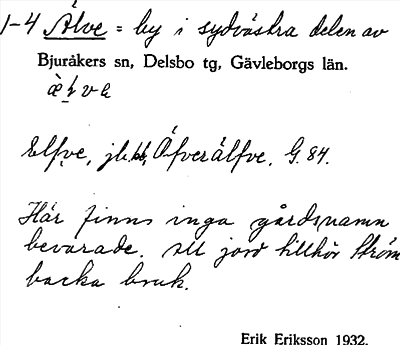 1-4 Älve = by i sydvästra delen av
Bjuråkers sn, Delsbo tg, Gävleborgs län.
Elfve, jb, Öfverälfve. G. 84.
Här finns inga gårdsnamn
bevarade. All jord tillhör Ström
backa bruk.
Erik Eriksson 1932.